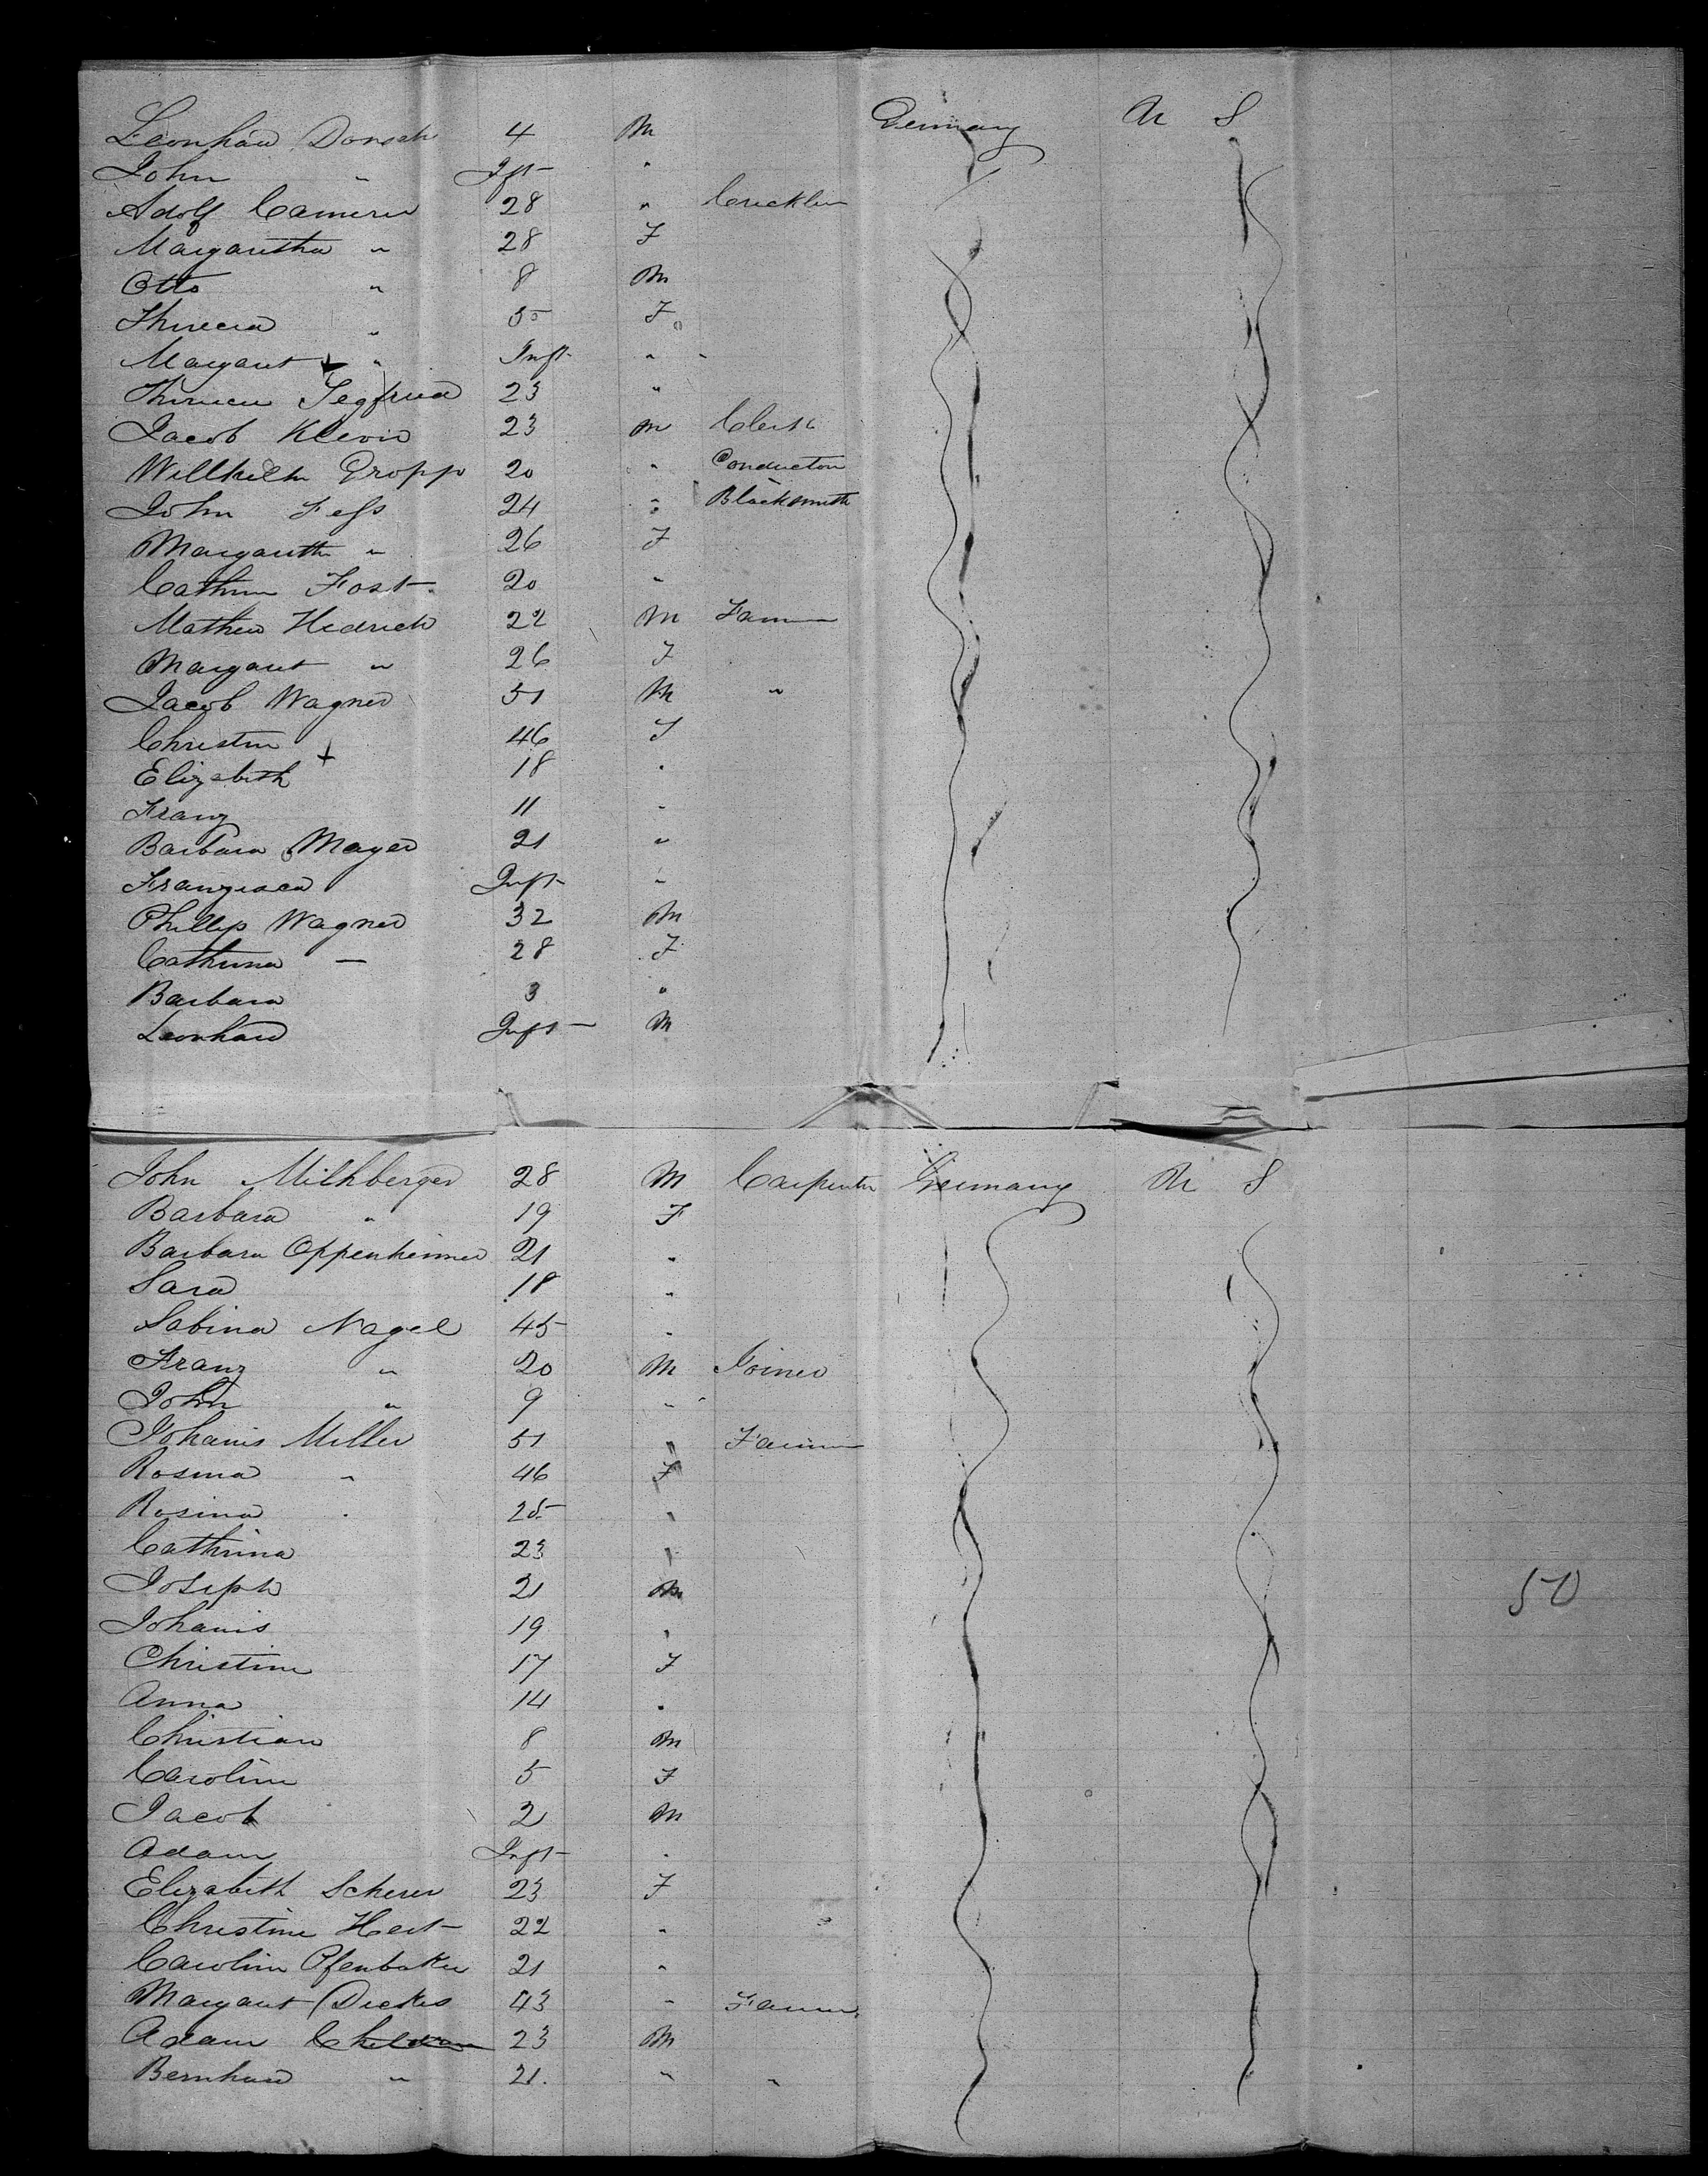 Leonhard Dorsch 4 M Germany U S
John " Inft "
Adolf Camerer 28 "
Margaretha " 28 F
Otto " 8 M
Theresia " 5 F
Margaret " Inft " "
Theresia Segfried 23 "
Jacob Klevir 23 m Clerk
Willhelm Gropp 20 " Conductor
John Fess 24 " Blacksmith
Margareth " 26 F
Cathrin Fost 20 "
Mathew Hedrich 22 M Farmer
Margaret " 26 F
Jacob Wagner 51 M "
Christin 46 F
Elizabeth 18 "
Franz 11 "
Barbara Mayer 21 "
Franzisca Inft "
Phillip Wagner 32 M
Cathrina — 28 F
Barbara 3 "
Leonhard Inft M
John Milhberger 28 M Carpenter Germany U S
Barbara " 19 F
Barbara Oppenheimer 21 "
Sara 18 "
Sabina Nagel 45 "
Franz " 20 M Joiner
John " 9 "
Johanis Miller 51 " Farmer
Rosina " 46 F
Rosina " 25 "
Cathrina 23 "
Joseph 21 M
Johanis 19 "
Christine 17 F
Anna 14 "
Christian 8 M
Caroline 5 F
Jacob 2 M
Adam Inft "
Elizabeth Scherer 23 F
Christine Hert 22 "
Caroline Ofenbaker 21 "
Margaret Dickes 43 " Farmer
Adam Children 23 M
Bernhard " 21 " "
50